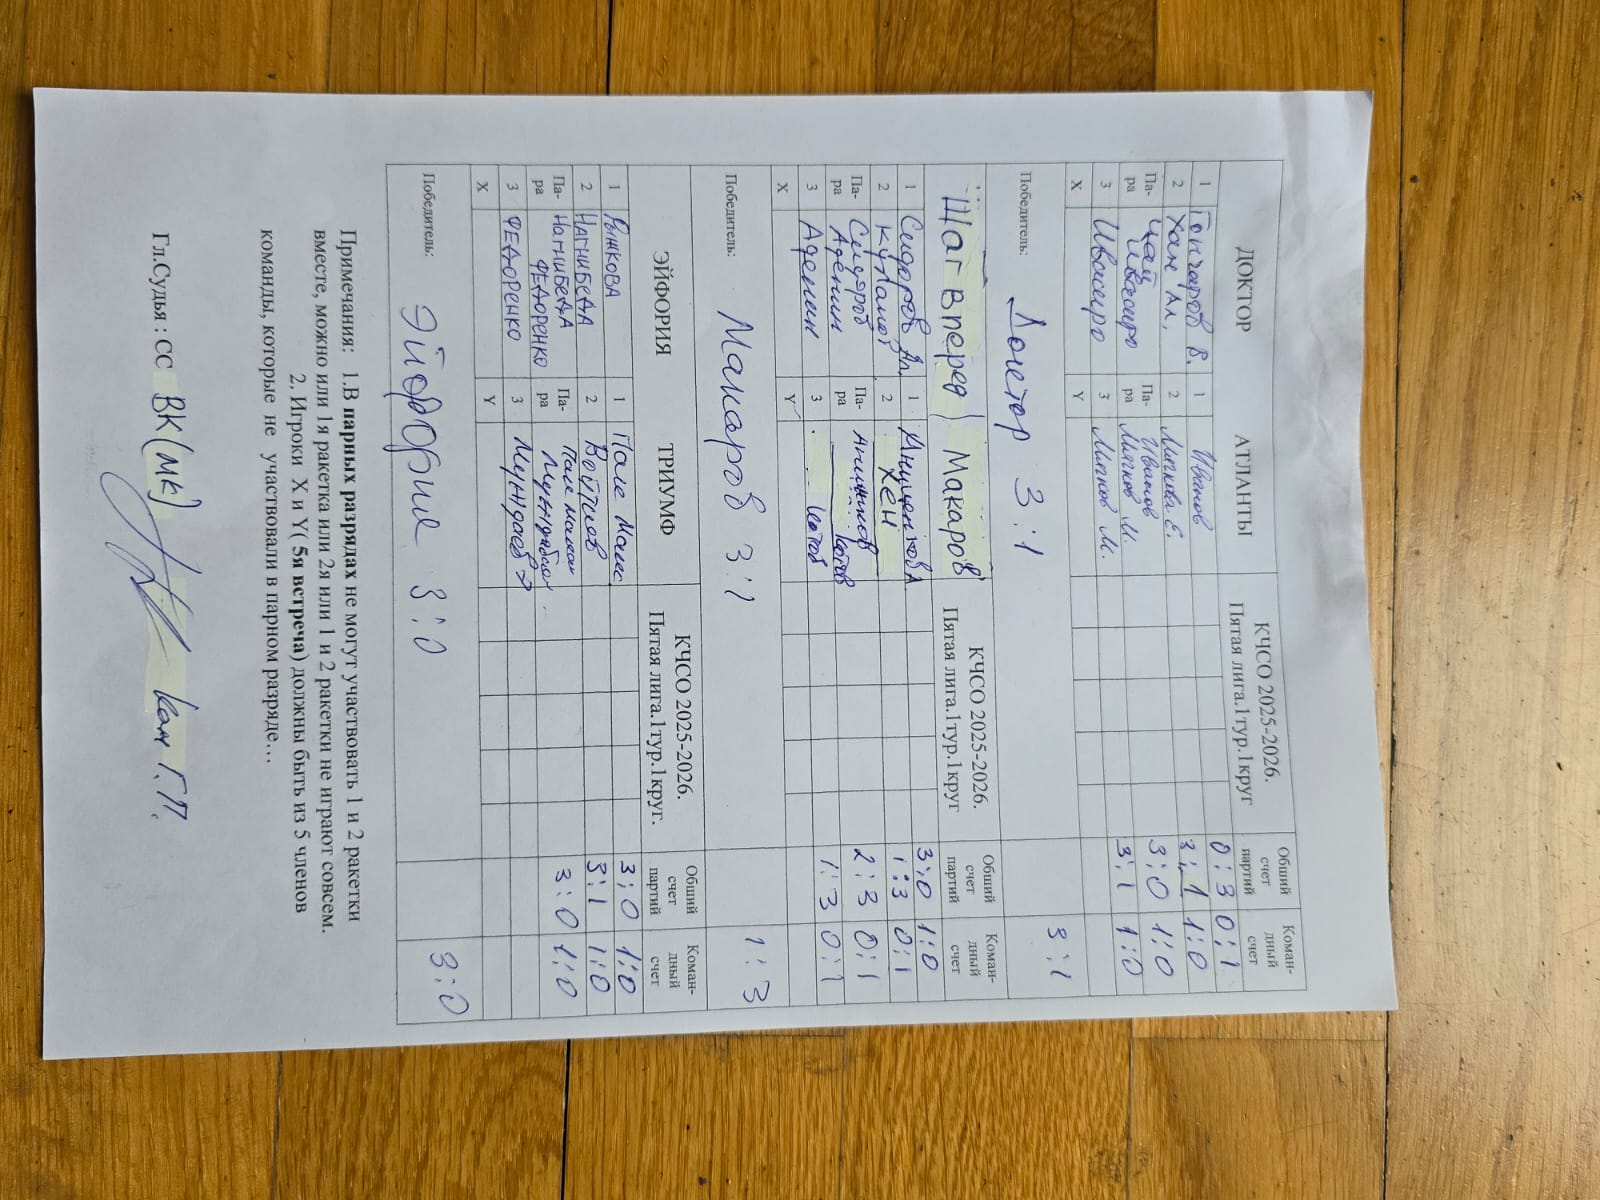 ДОКТОР АТЛАНТЫ КЧСО 2025-2026. Пятая лига.1тур.1круг Общий счет партий Коман-дный счет
1 Гончаров В. 1 Иванов 0:3 0:1
2 Хан Ал. 2 Личкова Е. 3:1 1:0
Па-ра Цай Ивасиро Па-ра Иванов Личков М. 3:0 1:0
3 Ивасиро 3 Личков М. 3:1 1:0
X Y
Победитель: Доктор 3:1 3:1
Шаг Вперед Макаров КЧСО 2025-2026. Пятая лига.1тур.1круг Общий счет партий Коман-дный счет
1 Сидоров Ал. 1 3:0 1:0
2 2 Хен 1:3 0:1
Па-ра Сидоров Аденин Па-ра Аншиков Котов 2:3 0:1
3 Аденин 3 Котов 1:3 0:1
X Y
Победитель: Макаров 3:1 1:3
ЭЙФОРИЯ ТРИУМФ КЧСО 2025-2026. Пятая лига.1тур.1круг. Общий счет партий Коман-дный счет
1 Рыжкова 1 3:0 1:0
2 НАГНИБЕДА 2 Войтков 3:1 1:0
Па-ра НАГНИБЕДА ФЕДОРЕНКО Па-ра 3:0 1:0
3 ФЕДОРЕНКО 3
X Y
Победитель: Эйфория 3:0 3:0
Примечания: 1.В парных разрядах не могут участвовать 1 и 2 ракетки
вместе, можно или 1я ракетка или 2я или 1 и 2 ракетки не играют совсем.
2. Игроки X и Y( 5я встреча) должны быть из 5 членов
команды, которые не участвовали в парном разряде…
Гл.Судья : СС ВК(МК) Ким Г.П.